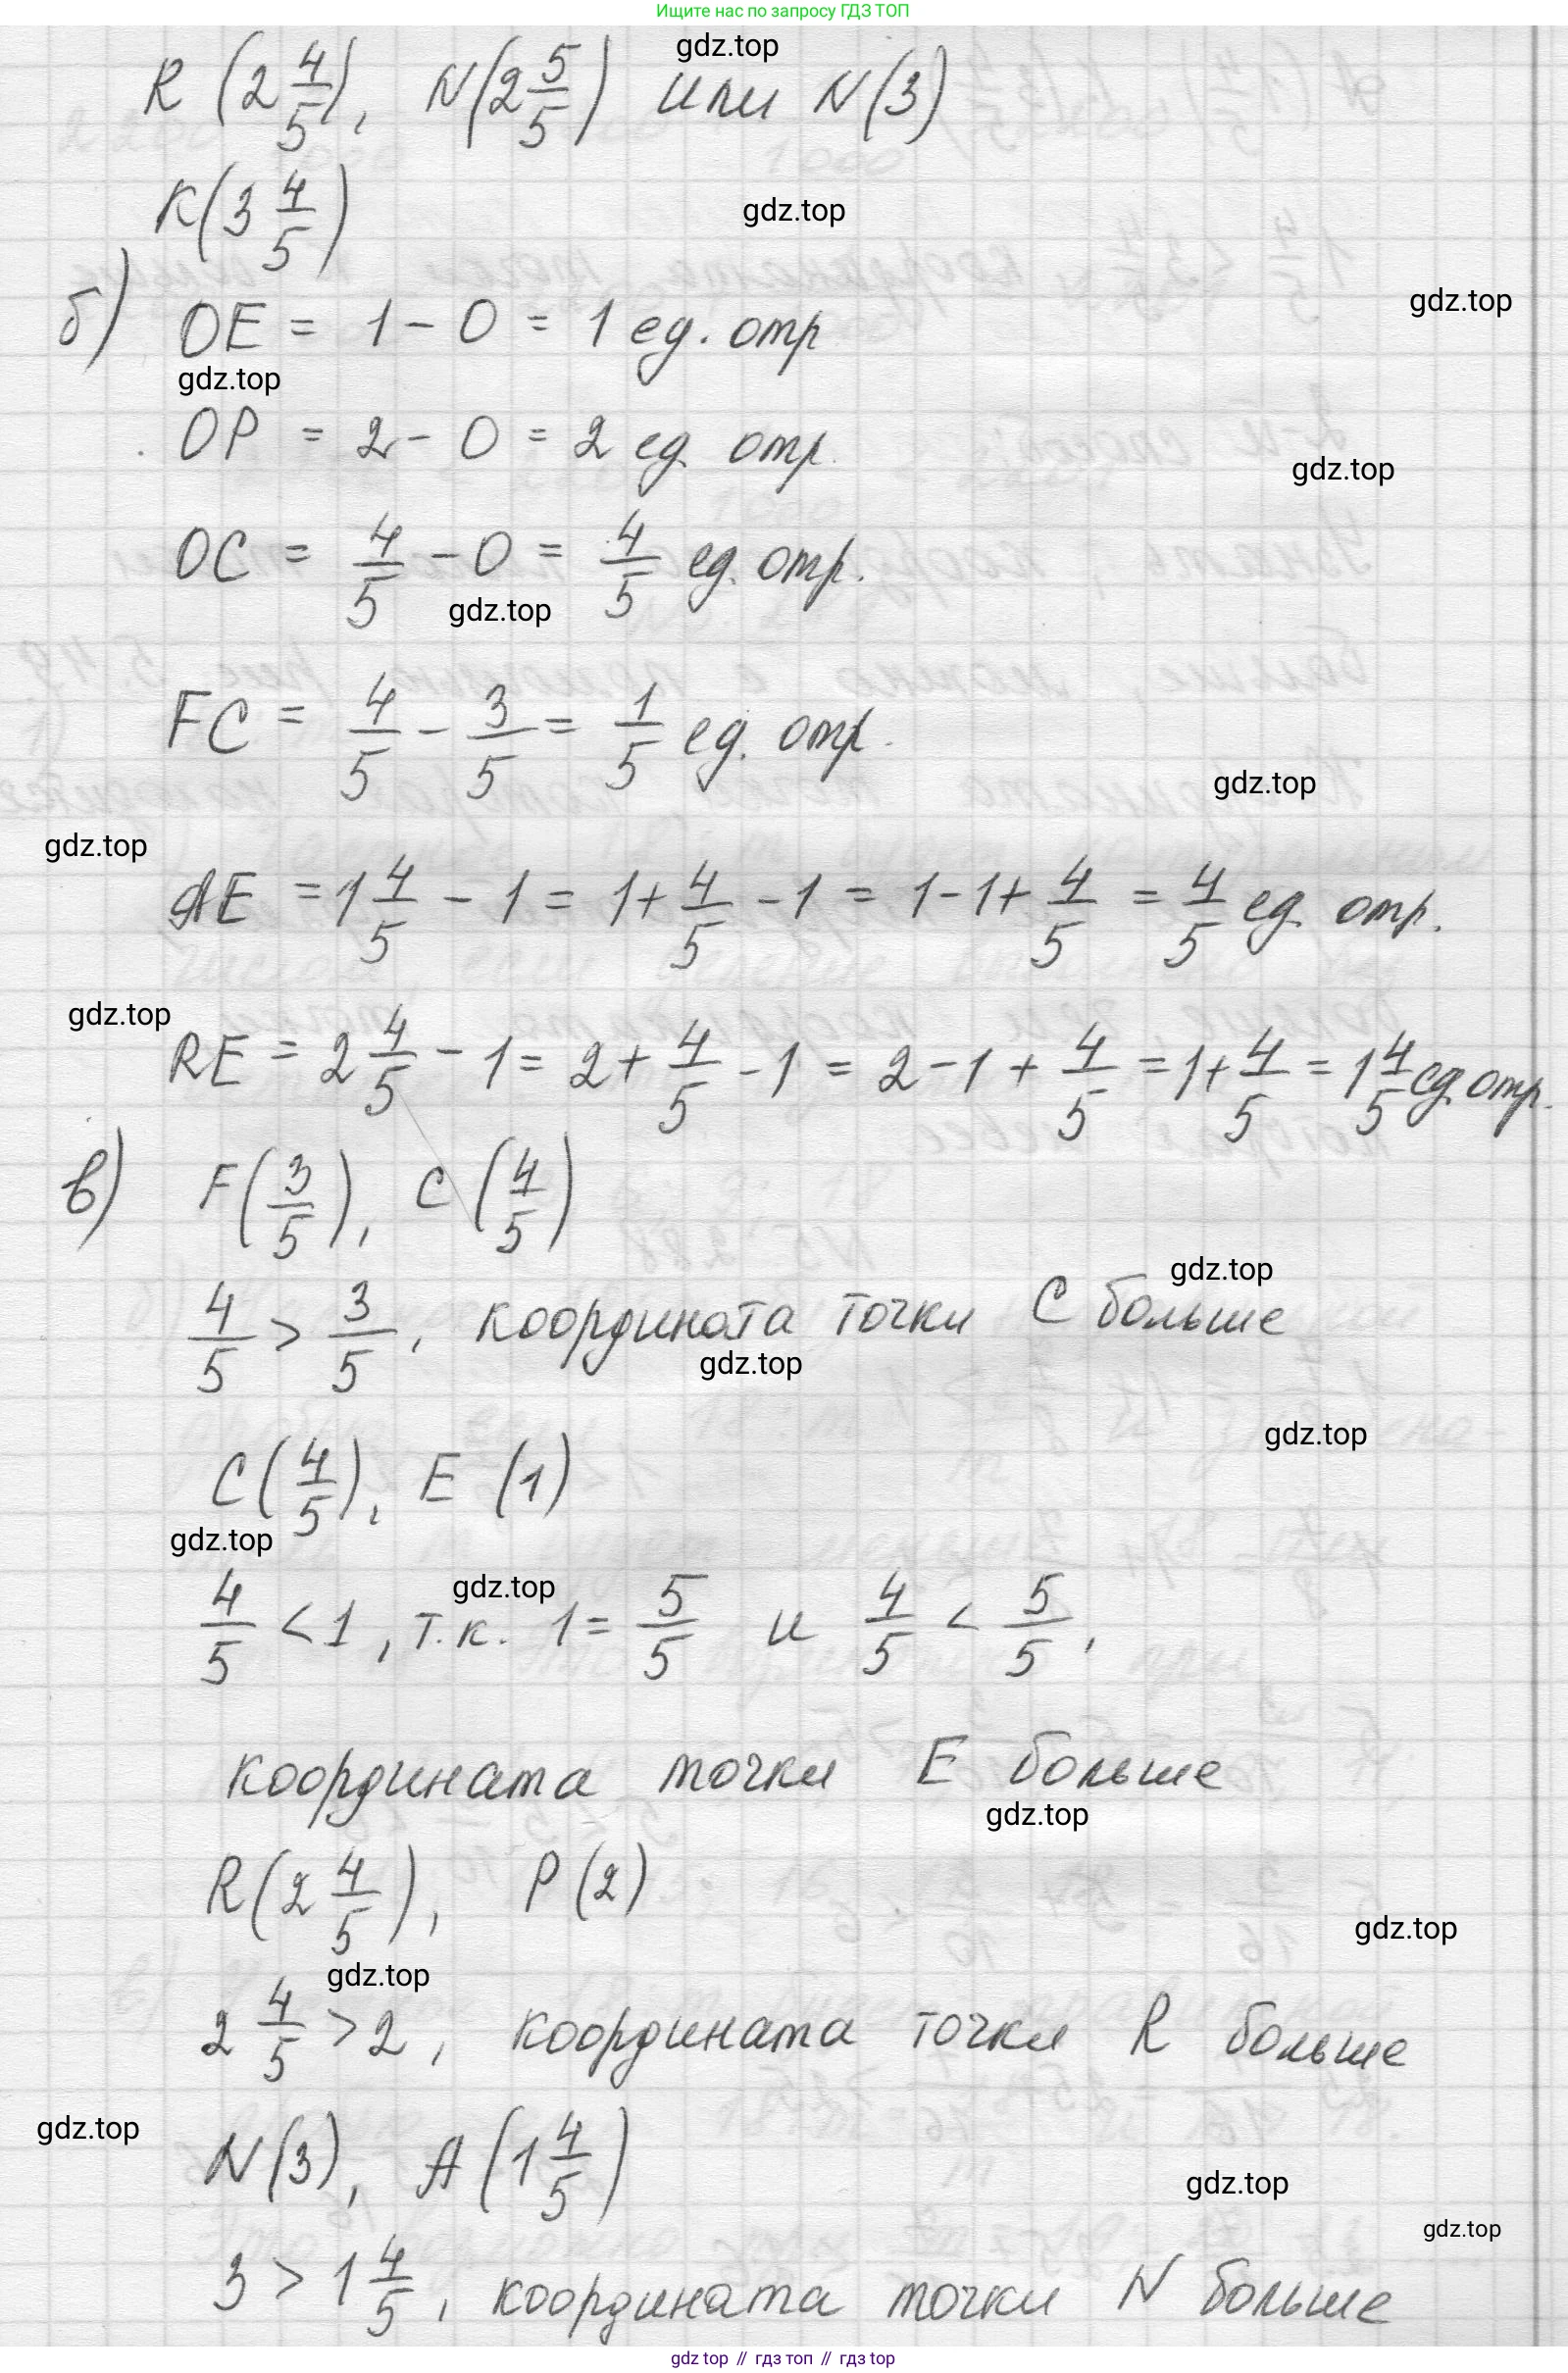 Ищите нас по запросу ГДЗ ТОП
gdz.top
R (2 4/5), N(2 5/5) или N(3)
K(3 4/5)
gdz.top
gdz.top
б) OE = 1 - 0 = 1 ед. отр
gdz.top
OP = 2 - 0 = 2 ед отр.
gdz.top
OC = 4/5 - 0 = 4/5 ед. отр.
gdz.top
FC = 4/5 - 3/5 = 1/5 ед. отр.
gdz.top
gdz.top
AE = 1 4/5 - 1 = 1 + 4/5 - 1 = 1 - 1 + 4/5 = 4/5 ед отр.
gdz.top
RE = 2 4/5 - 1 = 2 + 4/5 - 1 = 2 - 1 + 4/5 = 1 + 4/5 = 1 4/5 ед отр.
в) F(3/5), C(4/5)
gdz.top
4/5 > 3/5, координата точки C больше
gdz.top
gdz.top
C(4/5), E (1)
gdz.top
gdz.top
4/5 < 1, т.к. 1 = 5/5 и 4/5 < 5/5,
координата точки E больше
gdz.top
R(2 4/5), P(2)
gdz.top
gdz.top
2 4/5 > 2, координата точки R больше
gdz.top
N(3), A(1 4/5)
gdz.top
gdz.top
3 > 1 4/5, координата точки N больше
gdz top // гдз топ // гдз top